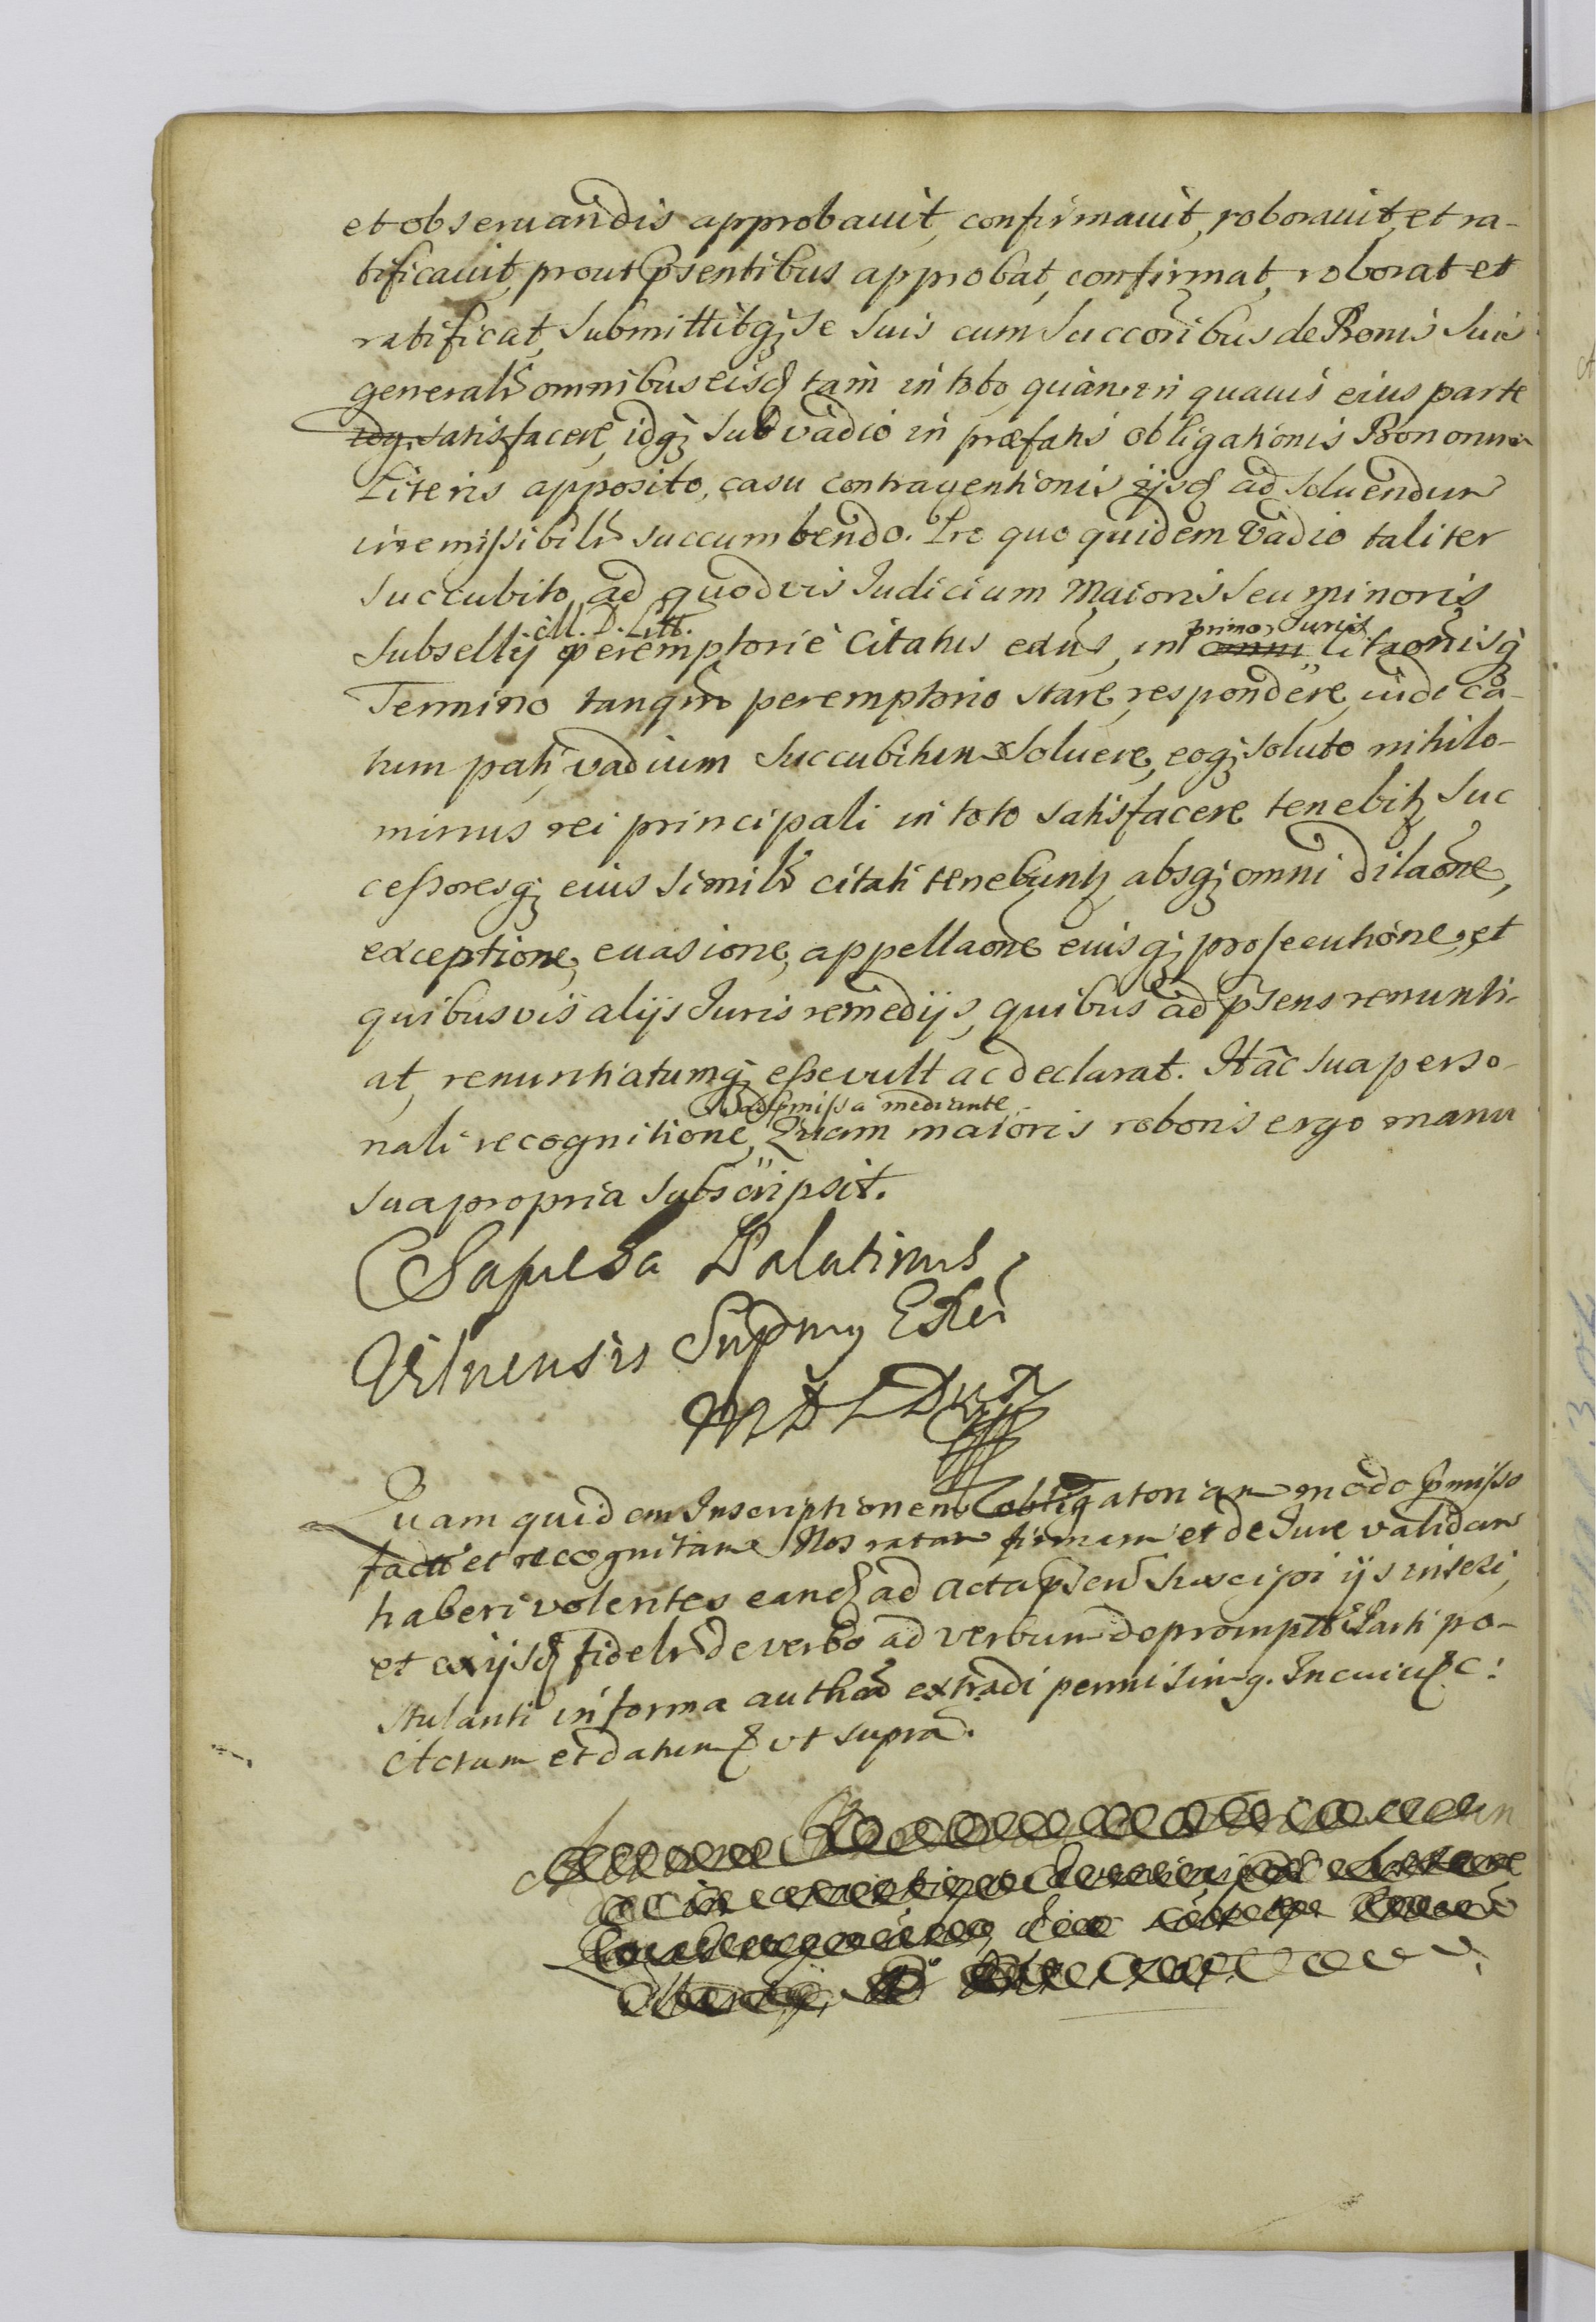 et obseruandis approbauit, confirmauit, roborauit, et ra-
tificauit, prout pr̃sentibus approbat, confirmat, roborat et
ratificat, submittitq̃ se suis cum succoribus de Bonis suis
generalr̃ omnibus eisd̃ tam in toto quàm in quauis eius parte
idq. satisfacere, idq̃ sub vadio in præfatis obligationis Bononien
Literis apposito, casu contrauentionis ijsd̃ ad soluendum
irremissibilr̃ succumbendo. Pro quo quidem vadio taliter
succubito, ad quoduis Iudicium Maioris seu minoris
M. D. Litt. primo, Iuris
subsellij peremptorie citatus ead̃s, in omni citaonisq̃
Termino tanqm̃ peremptorio stare, respondere, iudica-
tum pati, vadium succubitum soluere, eoq̃ soluto nihilo-
minus rei principali in toto satisfacere tenebitr̃, suc
cessoresq̃ eius similr̃ citati tenebuntr̃, absq̃ omni dilaõne,
exceptione, euasione, appellaone eiusq̃ prosecutione, et
quibusuis alijs Iuris remedijs, quibus ad pr̃sens renunti-
at, renuntiatumq̃ esse vult ac declarat. Hâc sua perso-
ad pr̃missa mediante
nali recognitione, Quam maioris roboris ergo manu
sua propria subscripsit.
CSapieha Palatinus
Vilnensis Supmꝰ Exer
MDL Dux
Quam quidem Inscriptionem obligatoriam modo pr̃misso
factã et recognitam Nos ratam firmam et de Iure validam
haberi volentes eand̃ ad Acta pr̃sen̄ suscipi ijs inseri,
et ex ijsd̃ fidelr̃ de verbo ad verbum depromptã Parti po-
stulanti in forma authen extradi permisimꝰ. In cuius &c:
Actum et datum ut supra.